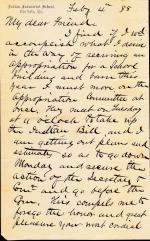 Indian Industrial School,
Carlisle, Pa.
Feby 4th 88
My dear friend
I find if I wd
accomplish what I desire
in the way of securing an
appropriation for a School
building and barn this
year I must be on the
appropriation Committee at
once. They meet on Tuesday
at 2 o'clock to take up
the Indian Bill, and I
am getting out plans and
estimates so as to go down
Monday and secure the
action of the Secretary &
Comr and go before the
Com. This compels me to
forego the honor and great
pleasure your kind